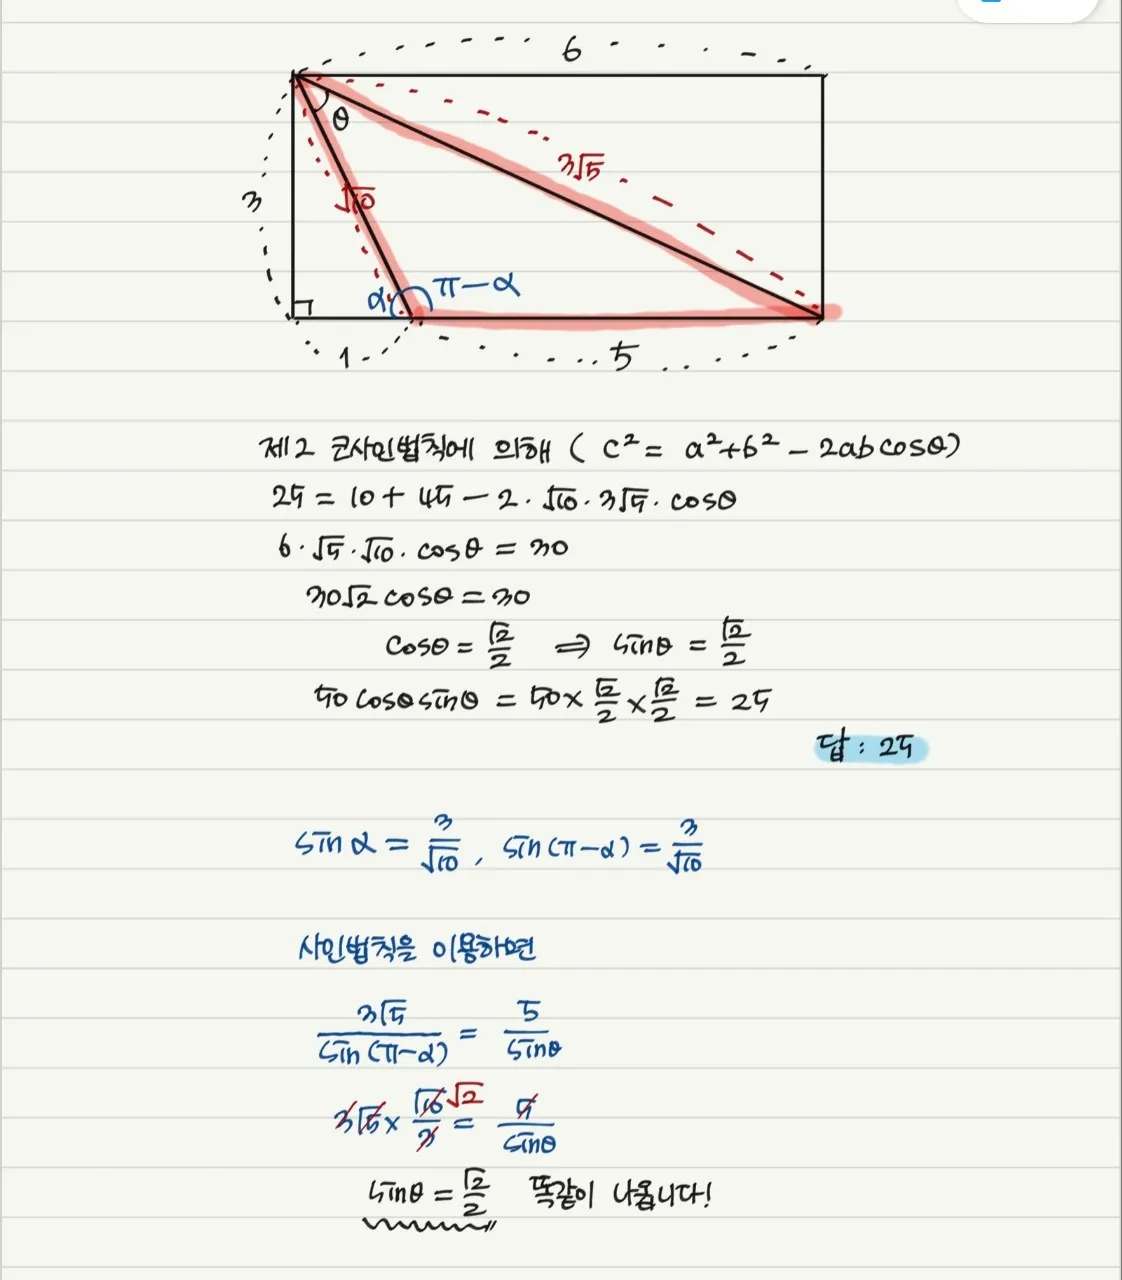 6
θ
3√5
3
√10
α
π-α
1
5
제2 코사인법칙에 의해 ( c² = a²+b² - 2ab cosθ)
25 = 10 + 45 - 2 · √10 · 3√5 · cosθ
6 · √5 · √10 · cosθ = 30
30√2 cosθ = 30
cosθ = √2/2 ⇒ sinθ = √2/2
50 cosθ sinθ = 50 × √2/2 × √2/2 = 25
답 : 25
sin α = 3/√10 , sin(π-α) = 3/√10
사인법칙을 이용하면
3√5/sin(π-α) = 5/sinθ
3√5 × √10/3 √2 = 5/sinθ
sinθ = √2/2 똑같이 나옵니다!